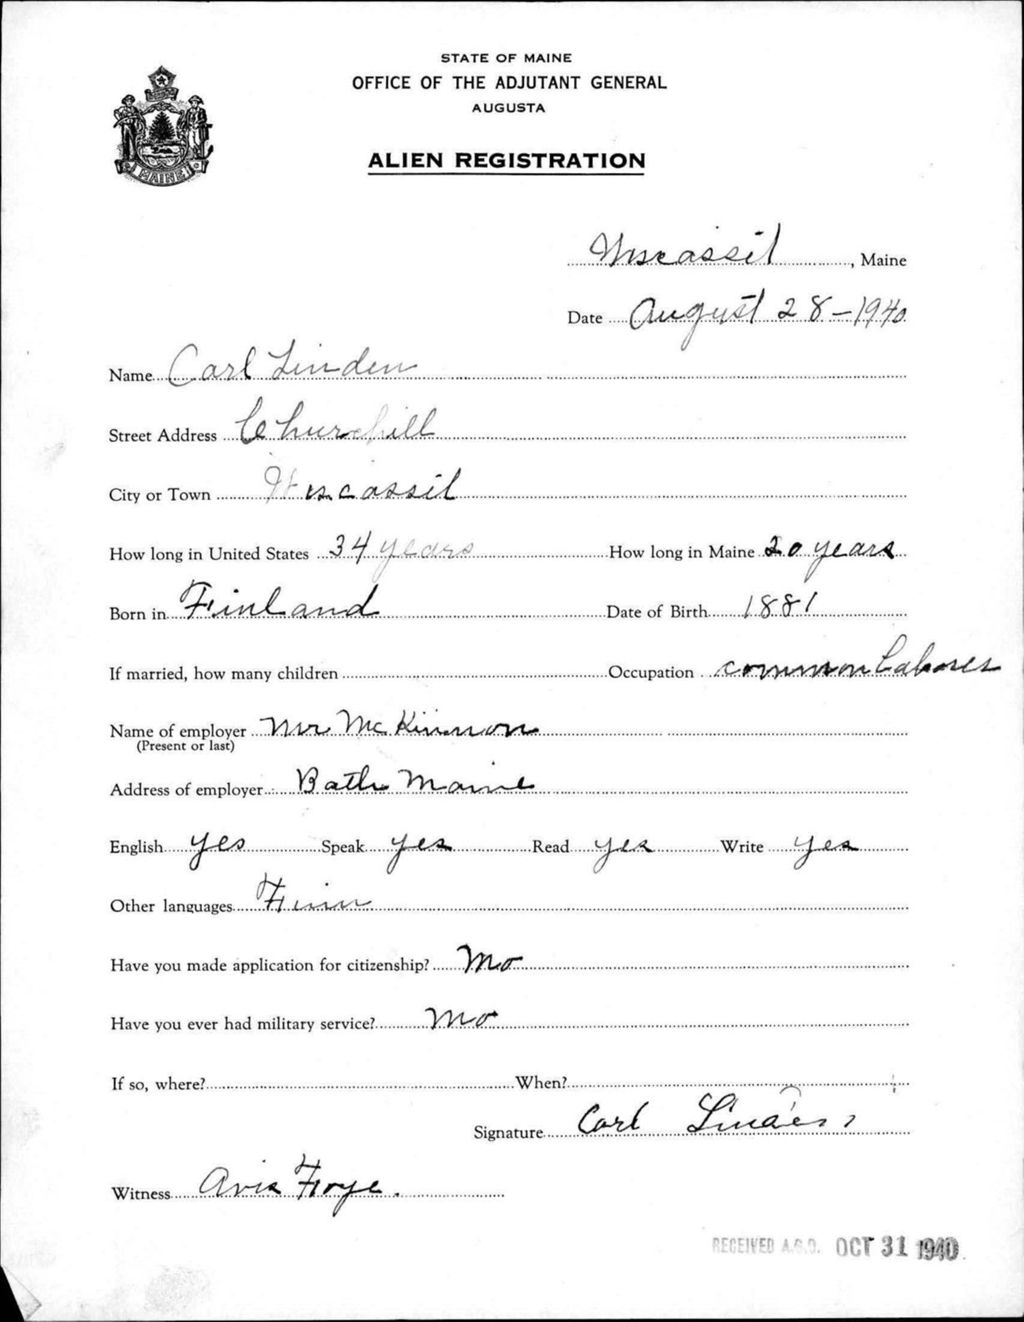 STATE OF MAINE
OFFICE OF THE ADJUTANT GENERAL
AUGUSTA
ALIEN REGISTRATION
MAINE
Wiscassit, Maine
Date August 28-1940
Name Carl Linden
Street Address Churchill
City or Town Wiscassit
How long in United States 34 years How long in Maine 20 years
Born in Finland Date of Birth 1881
If married, how many children Occupation common Laborer
Name of employer Mr McKinnon
(Present or last)
Address of employer Bath Maine
English yes Speak yes Read yes Write yes
Other languages Finn
Have you made application for citizenship? No
Have you ever had military service? No
If so, where? When?
Signature Carl Linden
Witness Avis Froye.
RECEIVED A.G.O. OCT 31 1940